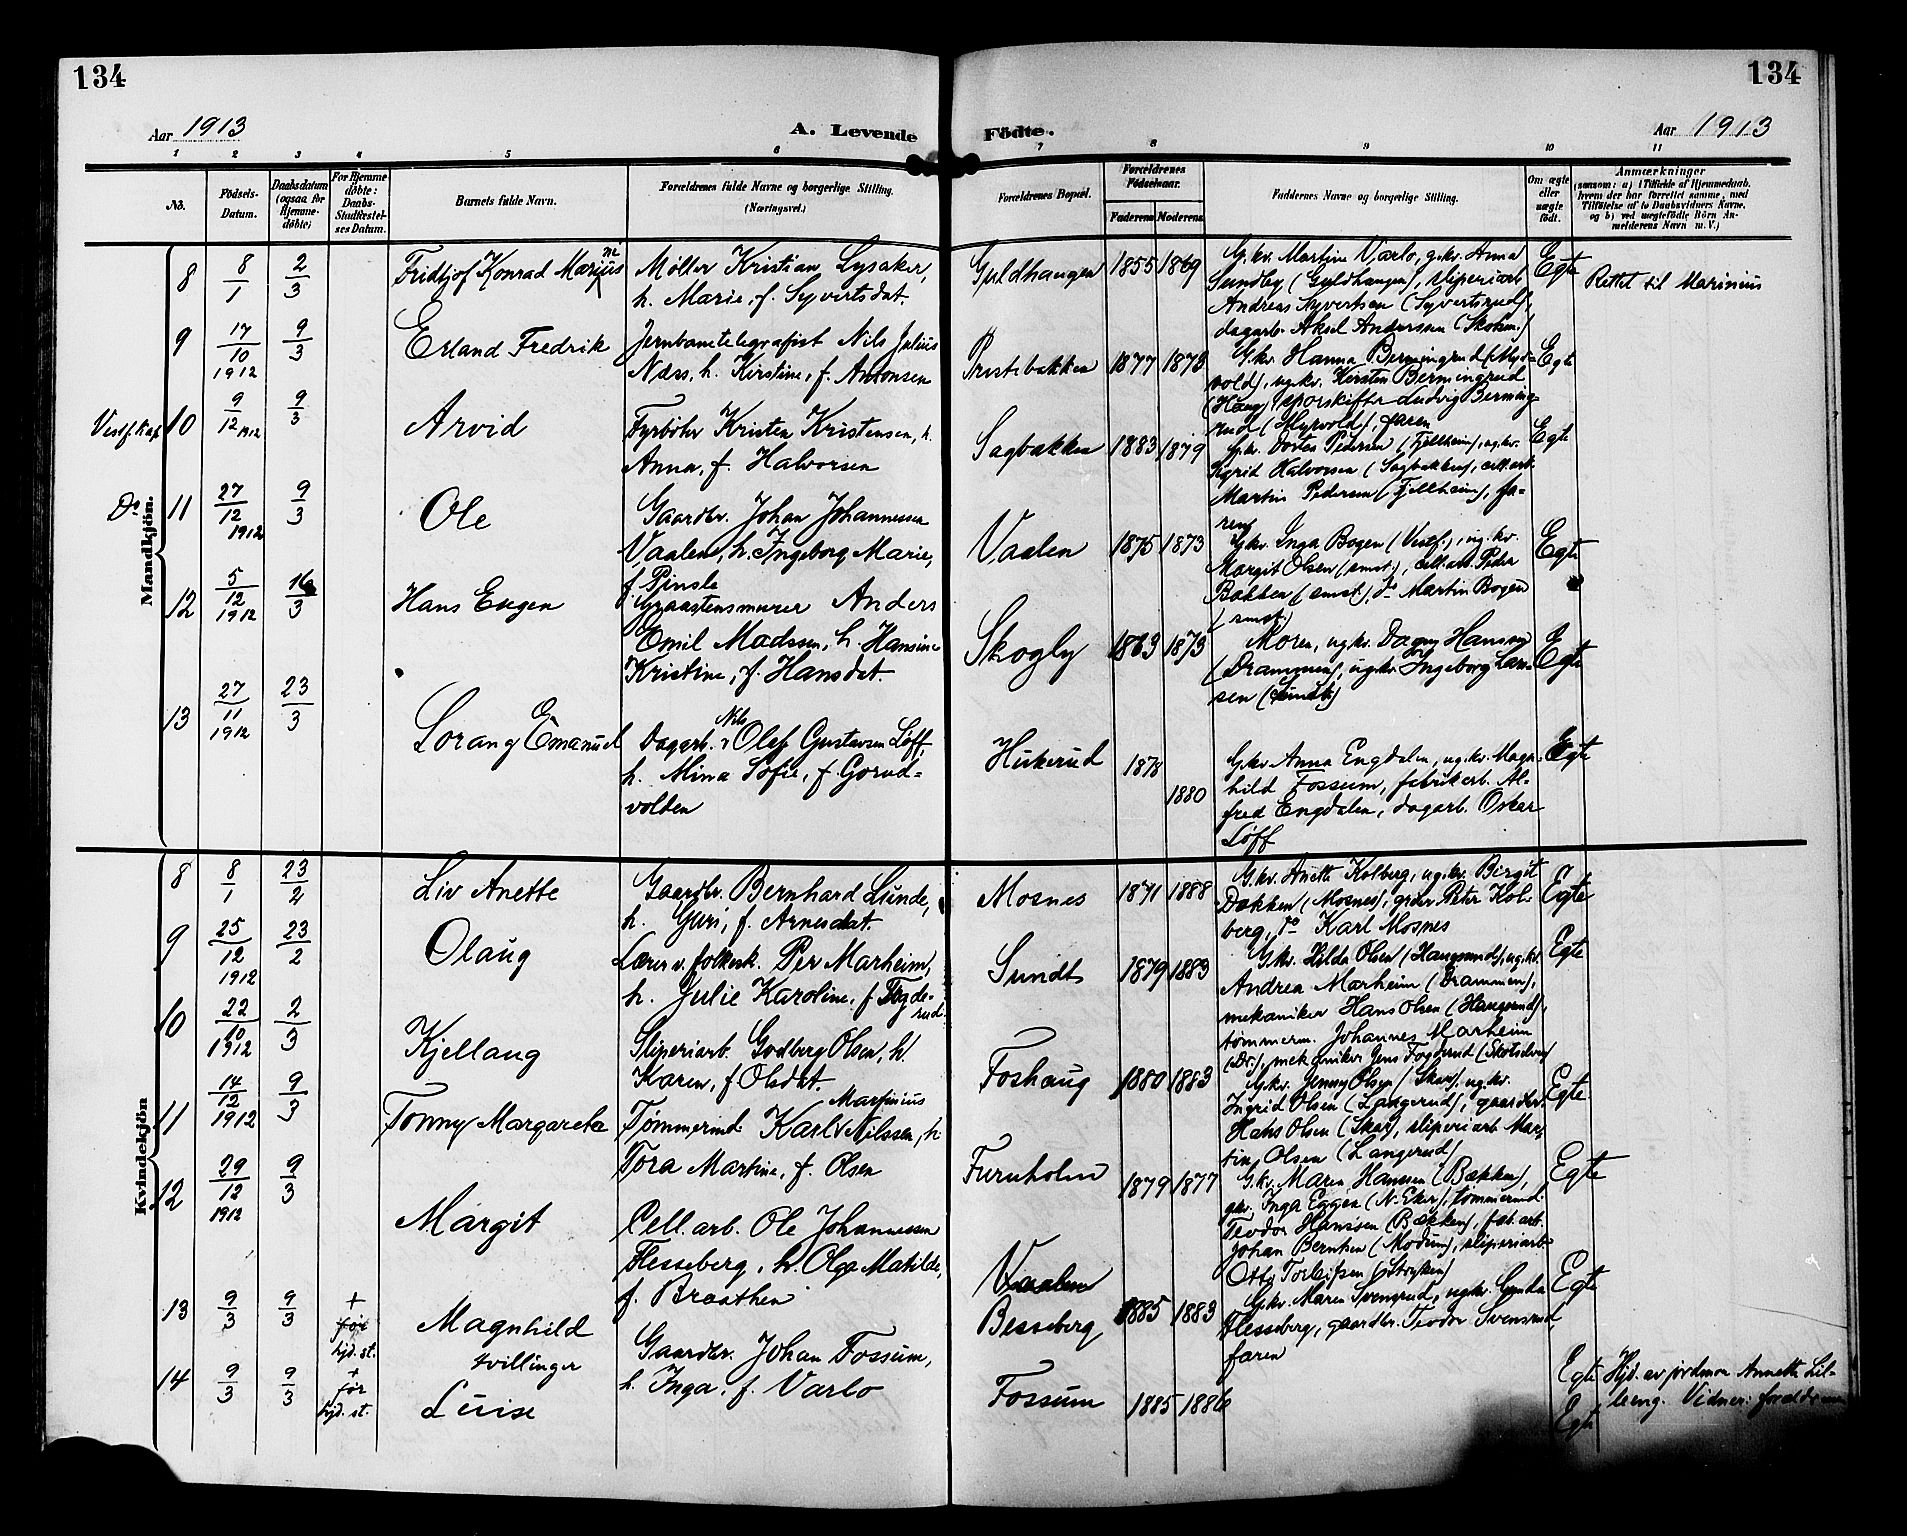 134
134
Aar 1913
A. Levende
Födte.
Aar 1913
1 2 3 4 5 6 7 8 9 10 11
No.
Födsels-
Datum.
Daabsdatum
(ogsaa for
Hjemme-
döbte)
For Hjemme
döbte:
Daabs-
Stadfæstel-
ses Datum.
Barnets fulde Navn.
Forældrenes fulde Navne og borgerlige Stilling.
(Næringsvei.)
Forældrenes Bopæl.
Forældrenes
Födselsaar.
Faderens
Moderens
Faddernes Navne og borgerlige Stilling.
Om ægte
eller
uægte
födt.
Anmærkninger
(saasom: a) i Tilfælde af Hjemmedaab,
hvem der har forrettet samme, med
Tilföielse af to Daabsvidners Navne,
og b) ved uægtefödte Börn An-
melderens Navn m. V.)
Mandkjön.
8
8/1
2/3
Fridtjof Konrad Marius
Møller Kristian Lysaker,
h. Marie, f. Syvertsdat.
Guldhaugen
1855
1869
G.kv. Martine Varlo, g.kv. Anna
Sundby (Guldhaugen), sliperiarb.
Andreas Syvertsen (Syvertsrud),
dagarb. Aksel Anderssen
Egte
Rettet til Marinius
9
17/10 1912
9/3
Erland Fredrik
Jernbanetelegrafist Nils Julius
Næss, h. Kirstine, f. Antonsen
Prestebakken
1877
1873
G.kv. Hanna Bermingrud (Myr-
vold), ug.kv. Kirsten Bermingrud
(Haug), sporskifter Ludvig Berming-
rud (Myrvold), faren
Egte
Vestf. kap.
10
9/12 1912
9/3
Arvid
Fyrbøter Kristen Kristensen, h.
Anna, f. Halvorsen
Sagbakken
1883
1879
G.kv. Dorten Pedersen (Fjellheim), ug.kv.
Sigrid Halvorsen (Sagbakken), cell.arb.
Martin Pedersen (Fjellheim), fa-
ren
Egte
Do
11
27/12 1912
9/3
Ole
Gaardbr. Johan Johannessen
Vaalen, h. Ingeborg Marie,
f. Pinsle
Vaalen
1875
1873
G.kv. Inga Bogen (Vestf.), ug.kv.
Margit Olsen (smst.), cell.arb. Peder
Bakken (smst.), do Martin Bogen
(smst.)
Egte
12
5/12 1912
16/3
Hans Eugen
Graastensmurer Anders
Emil Madssen, h. Hansine
Kristine, f. Hansdat.
Skogly
1863
1873
Moren, ug.kv. Dagny Hanssen
(Drammen), ug.kv. Ingeborg Lars-
sen (smst.)
Egte
13
27/11 1912
23/3
Lorang Emanuel
Nils
Dagarb. Olaf Gustavsen Løff,
h. Mina Sofie, f. Gorud-
volden
Hukerud
1878
1880
G.kv. Anna Engdalen, ug.kv. Magn-
hild Fossum, fabrikarb. Al-
fred Engdalen, dagarb. Oskar
Løff
Egte
Kvindekjön
8
8/1
23/2
Liv Anette
Gaardbr. Bernhard Lunde,
h. Guri, f. Arnesdat.
Mosnes
1871
1888
G.kv. Anette Kolberg, ug.kv. Birgit
Dokken (Mosnes), grder Peter Kol-
berg, do Karl Mosnes
Egte
9
25/12 1912
23/2
Olaug
Lærer v. folkesk. Per Marheim,
h. Julie Karoline, f. Fogde-
rud
Sundt
1879
1883
G.kv. Hilda Olsen (Haugsund), ug.kv.
Andrea Marheim (Drammen),
mekaniker Hans Olsen (Haugsund),
tømmerm. Johannes Marheim
(Dr.), mekaniker Jens Fogderud (Skotselven)
Egte
10
22/10 1912
2/3
Kjellaug
Sliperiarb. Godberg Olsen, h.
Karen, f. Olsdat.
Foshaug
1880
1883
G.kv. Jenny Olsen (Skar), ug.kv.
Ingrid Olsen (Langerud), gaardbr.
Hans Olsen (Skar), sliperiarb. Mar-
tin Olsen (Langerud)
Egte
11
14/12 1912
9/3
Tonny Margareta
Martinius
Tømmermd. Karl Nilssen, h.
Tora Martine, f. Olsen
Furuholm
1879
1877
G.kv. Maren Hanssen (Bækken),
g.kv. Inga Eggen (N. Eker), tømmermd.
Teodor Hanssen (Bækken), fab.arb.
Johan Berntsen (Modum), sliperiarb.
Otto Torleifsen (Stryken)
Egte
12
29/12 1912
9/3
Margit
Cell.arb. Ole Johannessen
Flesseberg, h. Olga Matilde,
f. Braathen
Vaalen
Besseberg
1885
1883
G.kv. Maren Svensrud, ug.kv. Gunda
Flesseberg, gaardbr. Teodor Svensrud,
faren
Egte
13
9/3
9/3
+
før
hjd. st.
Magnhild
tvillinger
Gaardbr. Johan Fossum,
h. Inga, f. Varlo
Fossum
1885
1886
Egte
Hjd. av jordmor Annette Lil-
leeng. Vidner: forældrene
14
9/3
9/3
+
før
hjd. st.
Luise
Egte